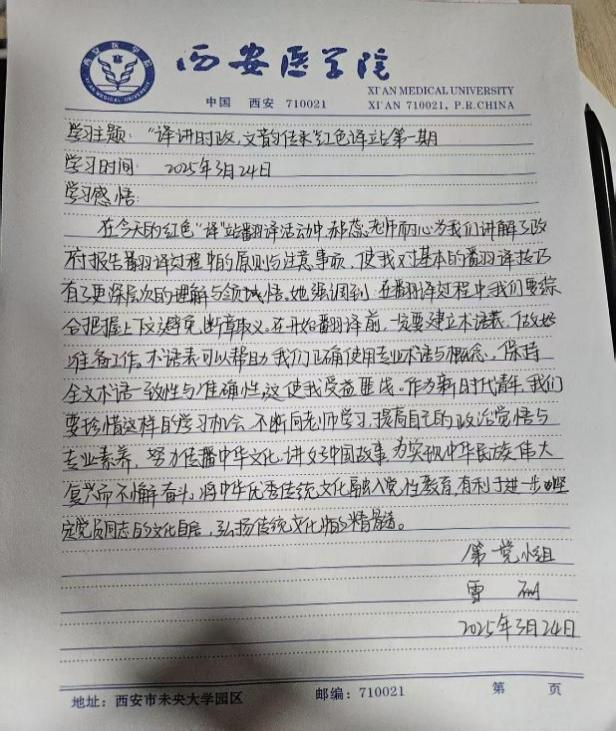 西安医学院
XI'AN MEDICAL UNIVERSITY
中国 西安 710021
XI'AN 710021, P.R.CHINA
学习主题：“译讲时政，文韵传承”红色译站第一期
学习时间：2025年3月24日
学习感悟：
在今天的红色“译”站翻译活动中，郝蕊老师耐心为我们讲解了政
府报告翻译过程中的原则与注意事项，使我对基本的翻译技巧
有了更深层次的理解与领悟。她强调到，在翻译过程中，我们要综
合把握上下文，避免断章取义。在开始翻译前，一定要建立术语表，做好
准备工作。术语表可以帮助我们正确使用专业术语与概念，保持
全文术语一致性与准确性，这使我受益匪浅。作为新时代青年，我们
要珍惜这样的学习机会，不断向老师学习，提高自己的政治觉悟与
专业素养，努力传播中华文化，讲好中国故事，为实现中华民族伟大
复兴而不懈奋斗。将中华优秀传统文化融入党性教育，有利于进一步坚
定党员同志的文化自信，弘扬传统文化的精髓。
第一党小组
2025年3月24日
地址：西安市未央大学园区 邮编：710021 第 页